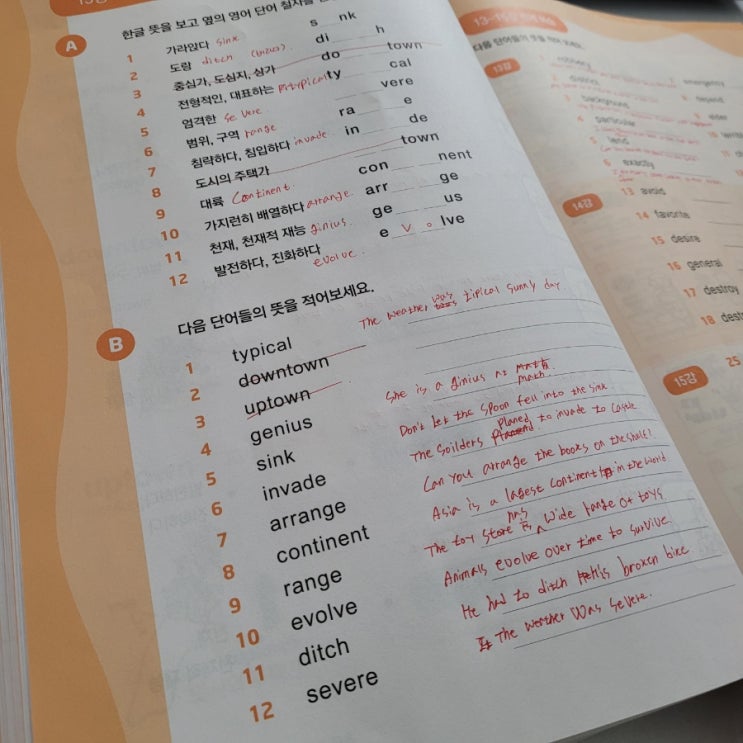 A
한글 뜻을 보고 옆의 영어 단어 철자를
1 가라앉다 sink s nk
2 도랑 ditch di h
3 중심가, 도심지, 상가 do town
4 전형적인, 대표하는 typical ty cal
5 엄격한 severe vere
6 범위, 구역 range ra e
7 침략하다, 침입하다 invade in de
8 도시의 주택가 town
9 대륙 Continent. con nent
10 가지런히 배열하다 arrange. arr ge
11 천재, 천재적 재능 ginius. ge us
12 발전하다, 진화하다 evolve. e v o lve
B
다음 단어들의 뜻을 적어보세요.
1 typical The weather was tipical sunny day.
2 downtown
3 uptown
4 genius She is a ginius at math.
5 sink Don't let the spoon fell into the sink.
6 invade The soilders planed to invade to castle
7 arrange Can you arrange the books on the shelf?
8 continent Asia is a lagest continent in the world
9 range The toy store has wide range of toys
10 evolve Animals evolve over time to survive.
11 ditch He had to ditch his broken bike
12 severe The weather was severe.
13강
1 robbery
2 district
3 background
4 particular
5 land
6 exactly
7 emergency
8 depend
9 elder
14강
13 avoid
14 favorite
15 desire
16 general
17 destroy
18 dest
15강
25